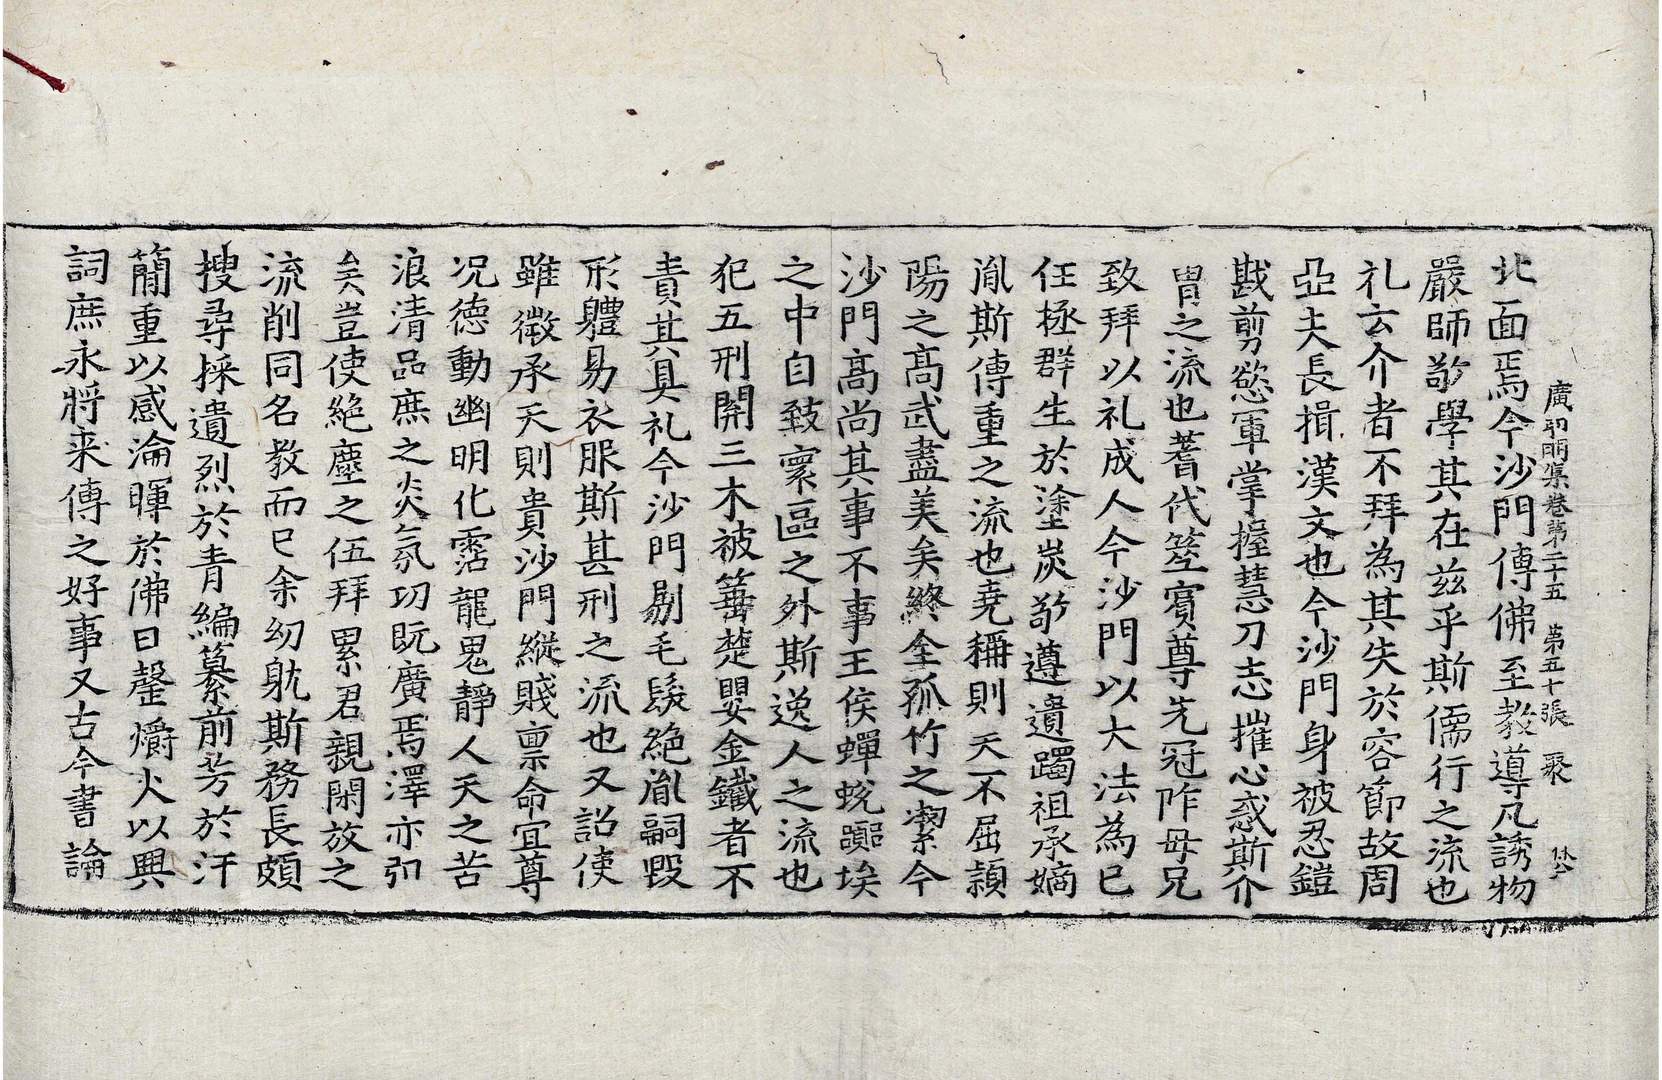 廣弘明集卷第二十五 第五十張 聚
北面焉今沙門傳佛至教導凡誘物
嚴師敬學其在茲乎斯儒行之流也
礼云介者不拜為其失於容節故周
亞夫長揖漢文也今沙門身被忍鎧
戡剪慾軍掌握慧刀志摧心惑斯介
冑之流也蓍代筮賓尊先冠阼母兄
致拜以礼成人今沙門以大法為已
任拯群生於塗炭敬遵遺躅祖承嫡
胤斯傳重之流也堯稱則天不屈頴
陽之高武盡美矣終全孤竹之潔今
沙門高尚其事不事王侯蟬蛻躡埃
之中自致寰區之外斯逸人之流也
犯五刑開三木被箠楚嬰金鐵者不
責其具礼今沙門剔毛髮絶胤嗣毀
形軆易衣服斯甚刑之流也又詔使
雖微承天則貴沙門縱賤禀命宜尊
况德動幽明化霑龍鬼靜人天之苦
浪清品庶之炎氛功既廣焉澤亦弘
矣豈使絶塵之伍拜累君親閑放之
流削同名教而已余幼躭斯務長頗
搜尋採遺烈於青編纂前芳於汗
簡重以感淪暉於佛日罄爝火以興
詞庶永將来傳之好事又古今書論